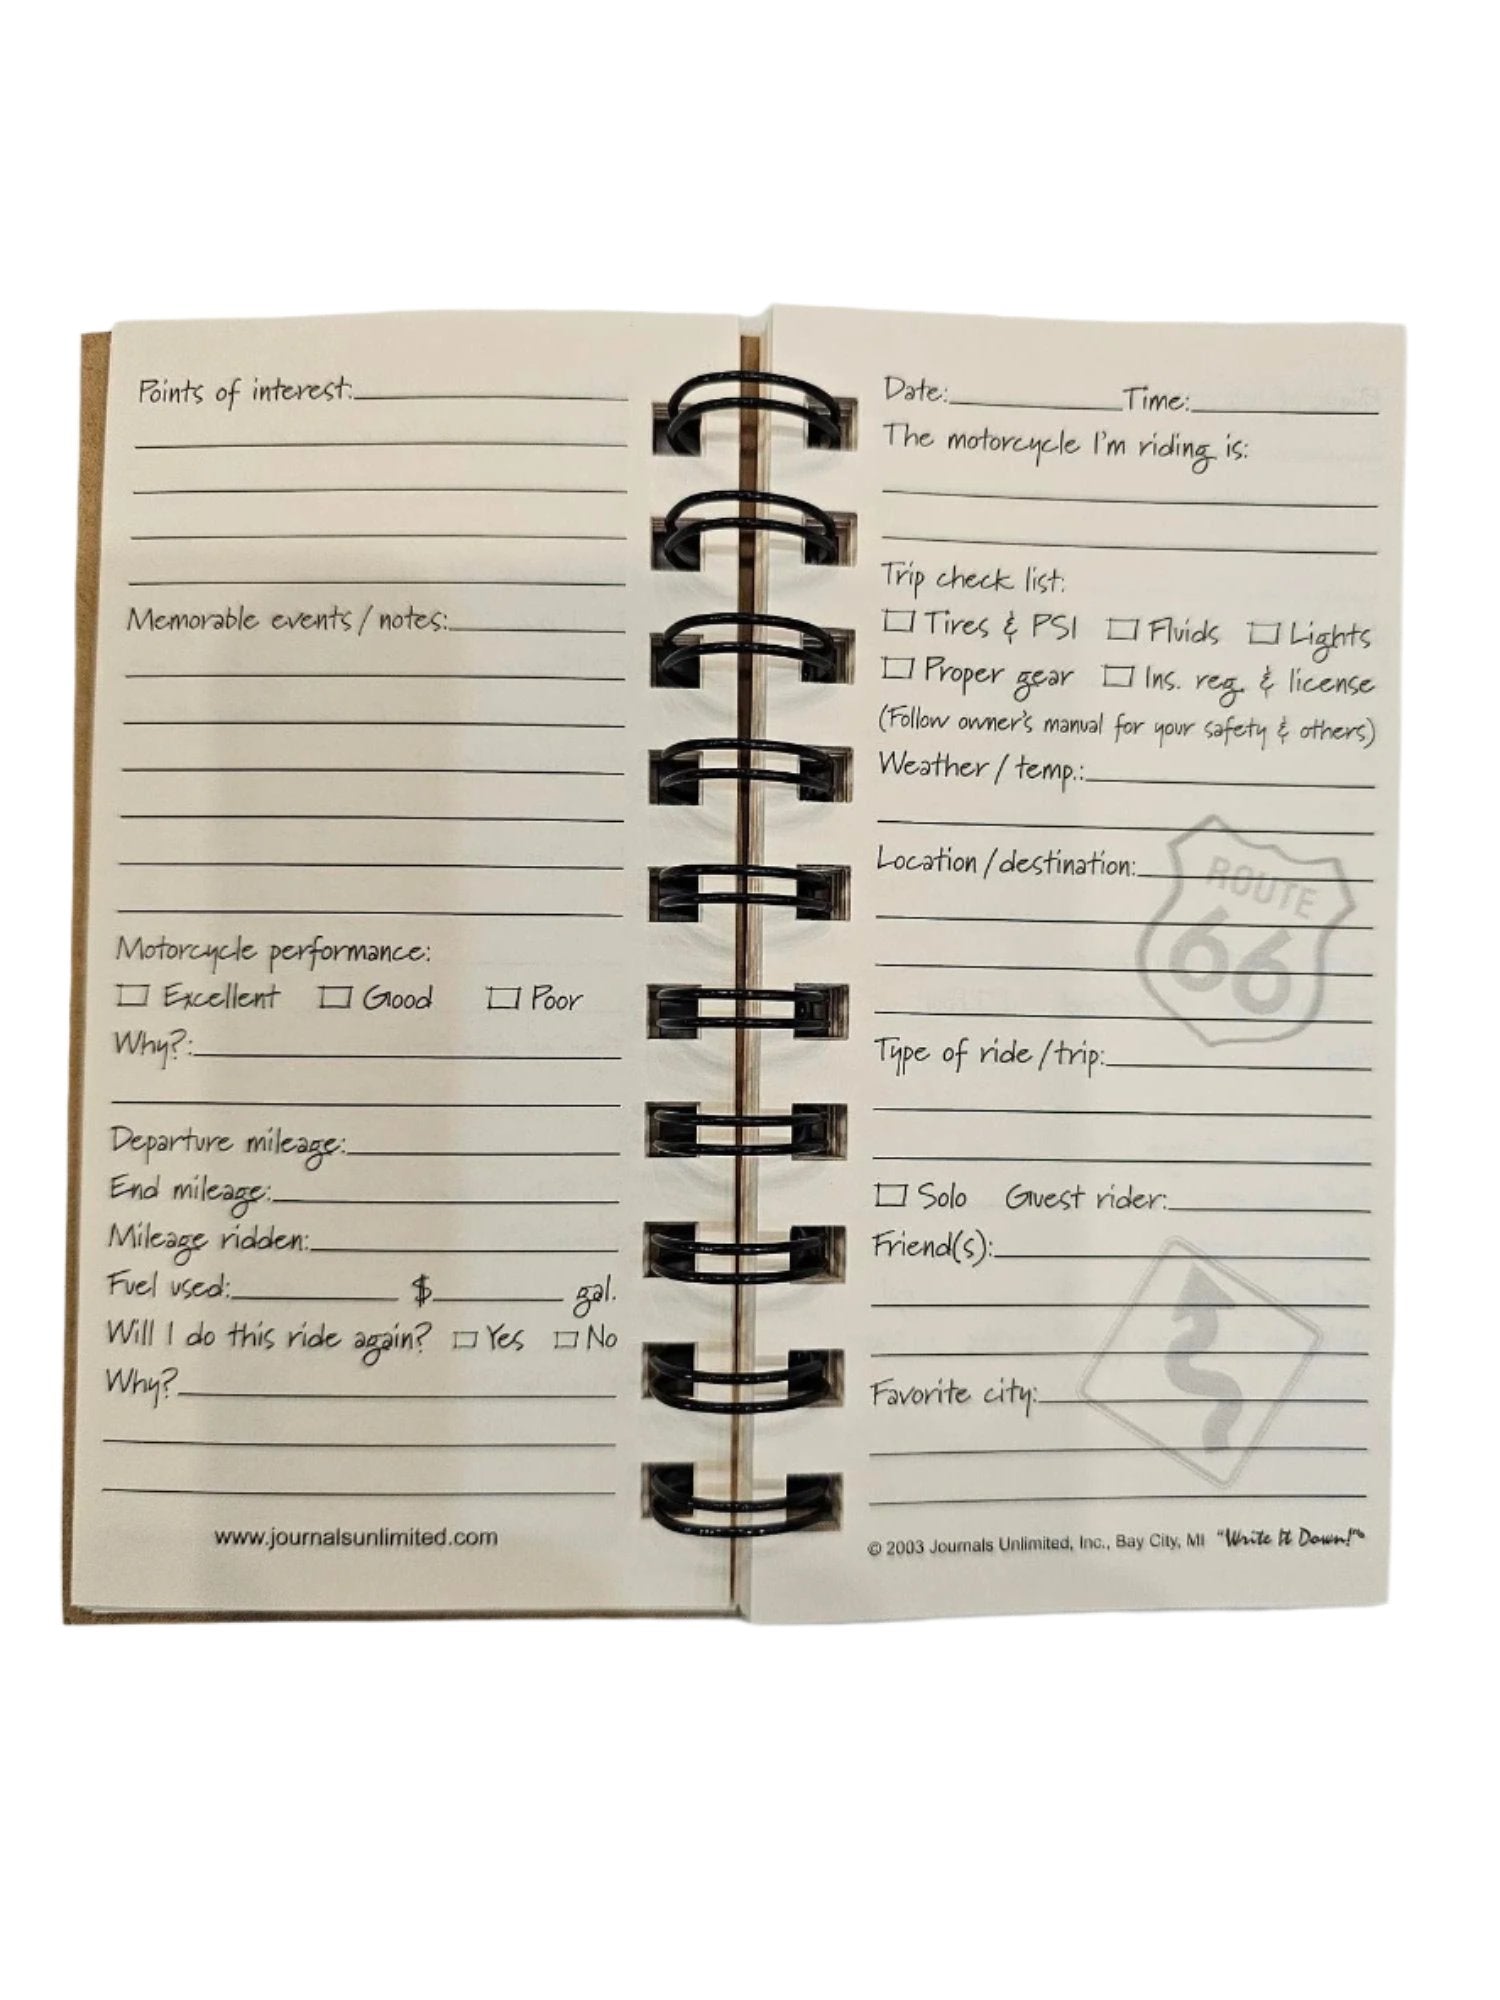 Points of interest:
Memorable events / notes:
Motorcycle performance:
Excellent Good Poor
Why?:
Departure mileage:
End mileage:
Mileage ridden:
Fuel used: $ gal.
Will I do this ride again? Yes No
Why?
www.journalsunlimited.com
Date: Time:
The motorcycle I'm riding is:
Trip check list:
Tires & PSI Fluids Lights
Proper gear Ins. reg. & license
(Follow owner's manual for your safety & others)
Weather / temp.:
Location / destination:
ROUTE
66
Type of ride / trip:
Solo Guest rider:
Friend(s):
Favorite city:
© 2003 Journals Unlimited, Inc., Bay City, MI "Write It Down!"®